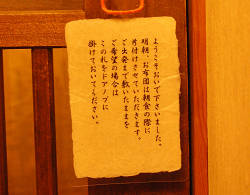 ようこそおいで下さいました。
明朝、お布団は朝食の際に
片付けさせていただきます。
ご出発まで敷いたままを
ご希望の場合は
この札をドアノブに
掛けておいてください。